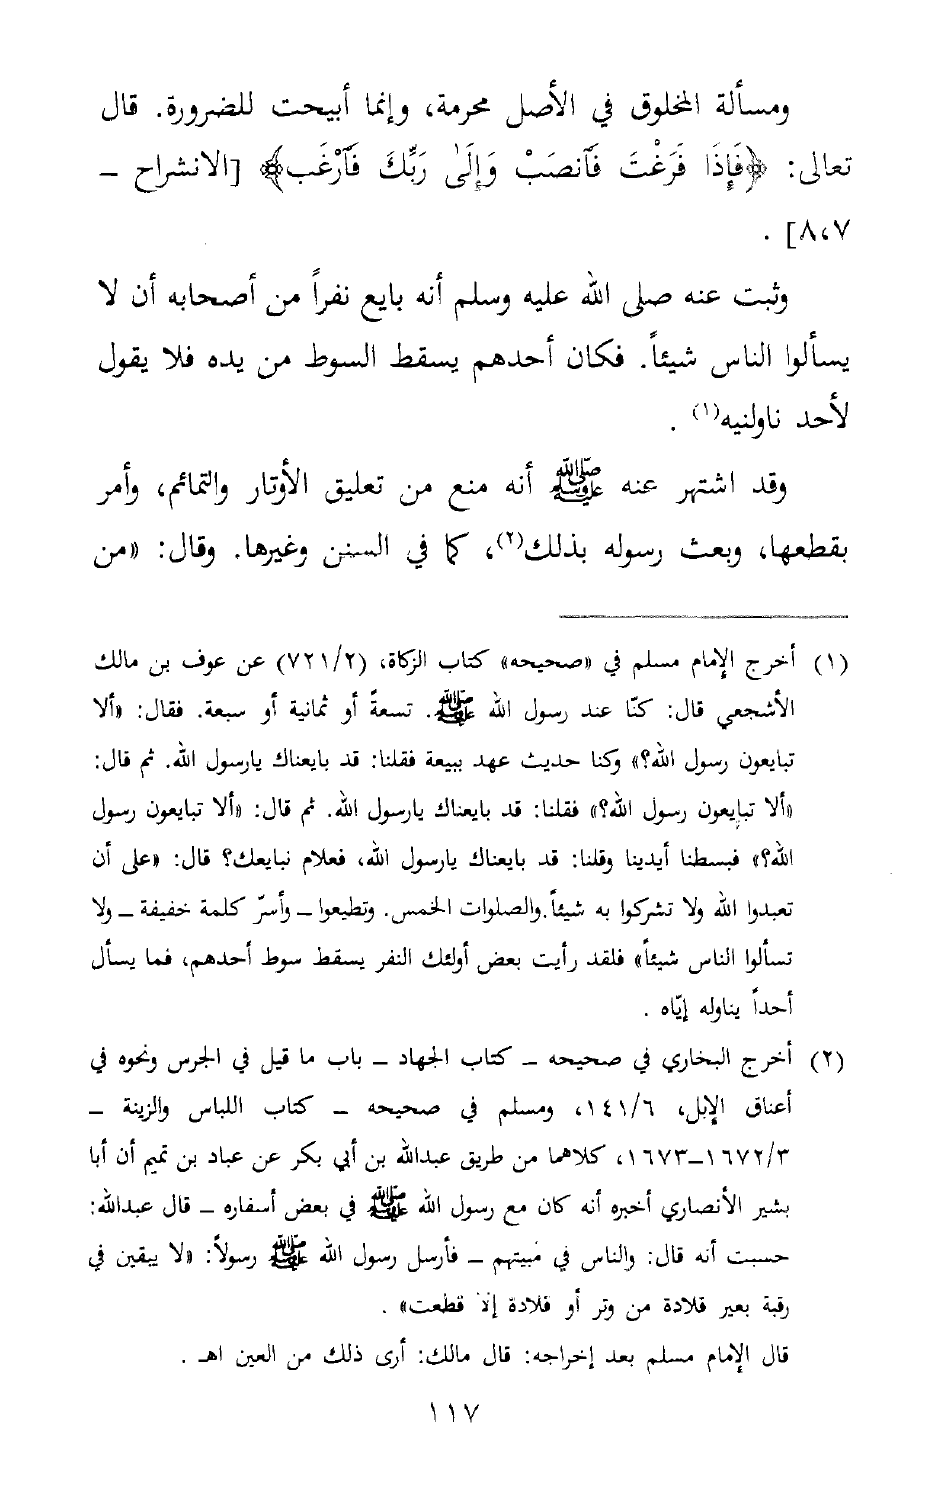 ومسألة المخلوق في الأصل محرمة، وإنما أبيحت للضرورة. قال
تعالى: ﴿فَإِذَا فَرَغْتَ فَٱنصَبْ وَإِلَىٰ رَبِّكَ فَٱرْغَب﴾ [الانشراح –
٨،٧] .
وثبت عنه صلى الله عليه وسلم أنه بايع نفراً من أصحابه أن لا
يسألوا الناس شيئاً. فكان أحدهم يسقط السوط من يده فلا يقول
لأحد ناولنيه(١) .
وقد اشتهر عنه ﷺ أنه منع من تعليق الأوتار والتمائم، وأمر
بقطعها، وبعث رسوله بذلك(٢)، كما في السنن وغيرها. وقال: «من
(١) أخرج الإمام مسلم في «صحيحه» كتاب الزكاة، (٧٢١/٢) عن عوف بن مالك
الأشجعي قال: كنّا عند رسول الله ﷺ. تسعةً أو ثمانية أو سبعة. فقال: «ألا
تبايعون رسول الله؟» وكنا حديث عهد ببيعة فقلنا: قد بايعناك يارسول الله. ثم قال:
«ألا تبايعون رسول الله؟» فقلنا: قد بايعناك يارسول الله. ثم قال: «ألا تبايعون رسول
الله؟» فبسطنا أيدينا وقلنا: قد بايعناك يارسول الله، فعلام نبايعك؟ قال: «على أن
تعبدوا الله ولا تشركوا به شيئاً.والصلوات الخمس. وتطيعوا – وأسرّ كلمة خفيفة – ولا
تسألوا الناس شيئاً» فلقد رأيت بعض أولئك النفر يسقط سوط أحدهم، فما يسأل
أحداً يناوله إيّاه .
(٢) أخرج البخاري في صحيحه – كتاب الجهاد – باب ما قيل في الجرس ونحوه في
أعناق الإبل، ١٤١/٦، ومسلم في صحيحه – كتاب اللباس والزينة –
١٦٧٢/٣–١٦٧٣، كلاهما من طريق عبدالله بن أبي بكر عن عباد بن تميم أن أبا
بشير الأنصاري أخبره أنه كان مع رسول الله ﷺ في بعض أسفاره – قال عبدالله:
حسبت أنه قال: والناس في مبيتهم – فأرسل رسول الله ﷺ رسولاً: «لا يبقين في
رقبة بعير قلادة من وتر أو قلادة إلا قطعت» .
قال الإمام مسلم بعد إخراجه: قال مالك: أرى ذلك من العين اهـ .
١١٧